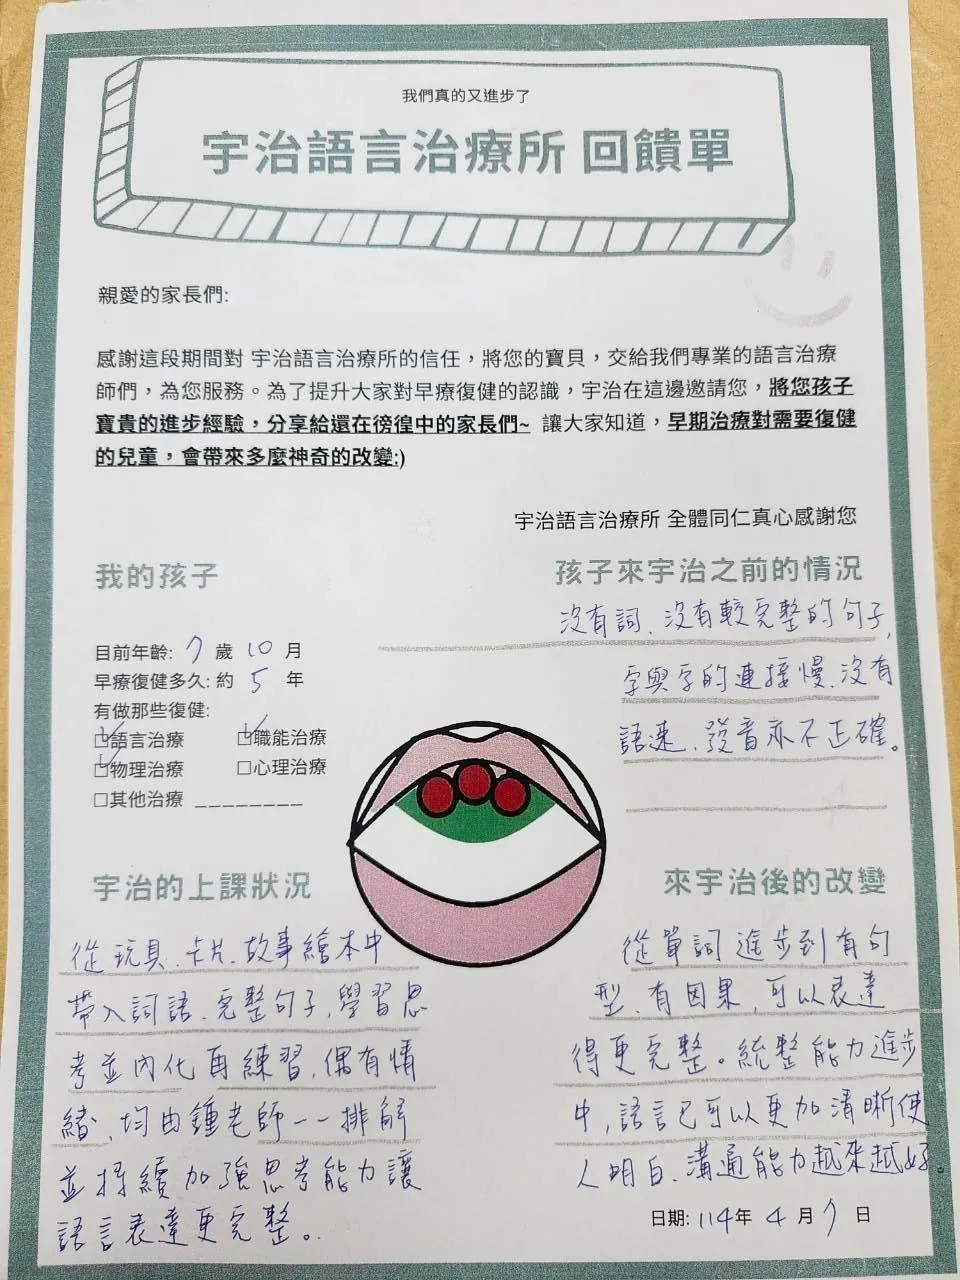 我們真的又進步了
宇治語言治療所 回饋單
親愛的家長們:
感謝這段期間對 宇治語言治療所的信任，將您的寶貝，交給我們專業的語言治療
師們，為您服務。為了提升大家對早療復健的認識，宇治在這邊邀請您，將您孩子
寶貴的進步經驗，分享給還在徬徨中的家長們~ 讓大家知道，早期治療對需要復健
的兒童，會帶來多麼神奇的改變:)
宇治語言治療所 全體同仁真心感謝您
我的孩子
目前年齡: 7 歲 10 月
早療復健多久: 約 5 年
有做那些復健:
☑語言治療 ☑職能治療
☑物理治療 □心理治療
□其他治療 ________
孩子來宇治之前的情況
沒有詞、沒有較完整的句子,
字與字的連接慢、沒有
語速、發音亦不正確。
宇治的上課狀況
從玩具、卡片、故事繪本中
帶入詞語、完整句子,學習思
考並內化再練習,偶有情
緒、均由鍾老師一一排解
並持續加強思考能力讓
語言表達更完整。
來宇治後的改變
從單詞進步到有句
型、有因果,可以表達
得更完整。統整能力進步
中,語言已可以更加清晰使
人明白、溝通能力越來越好。
日期: 114年 4 月 7 日